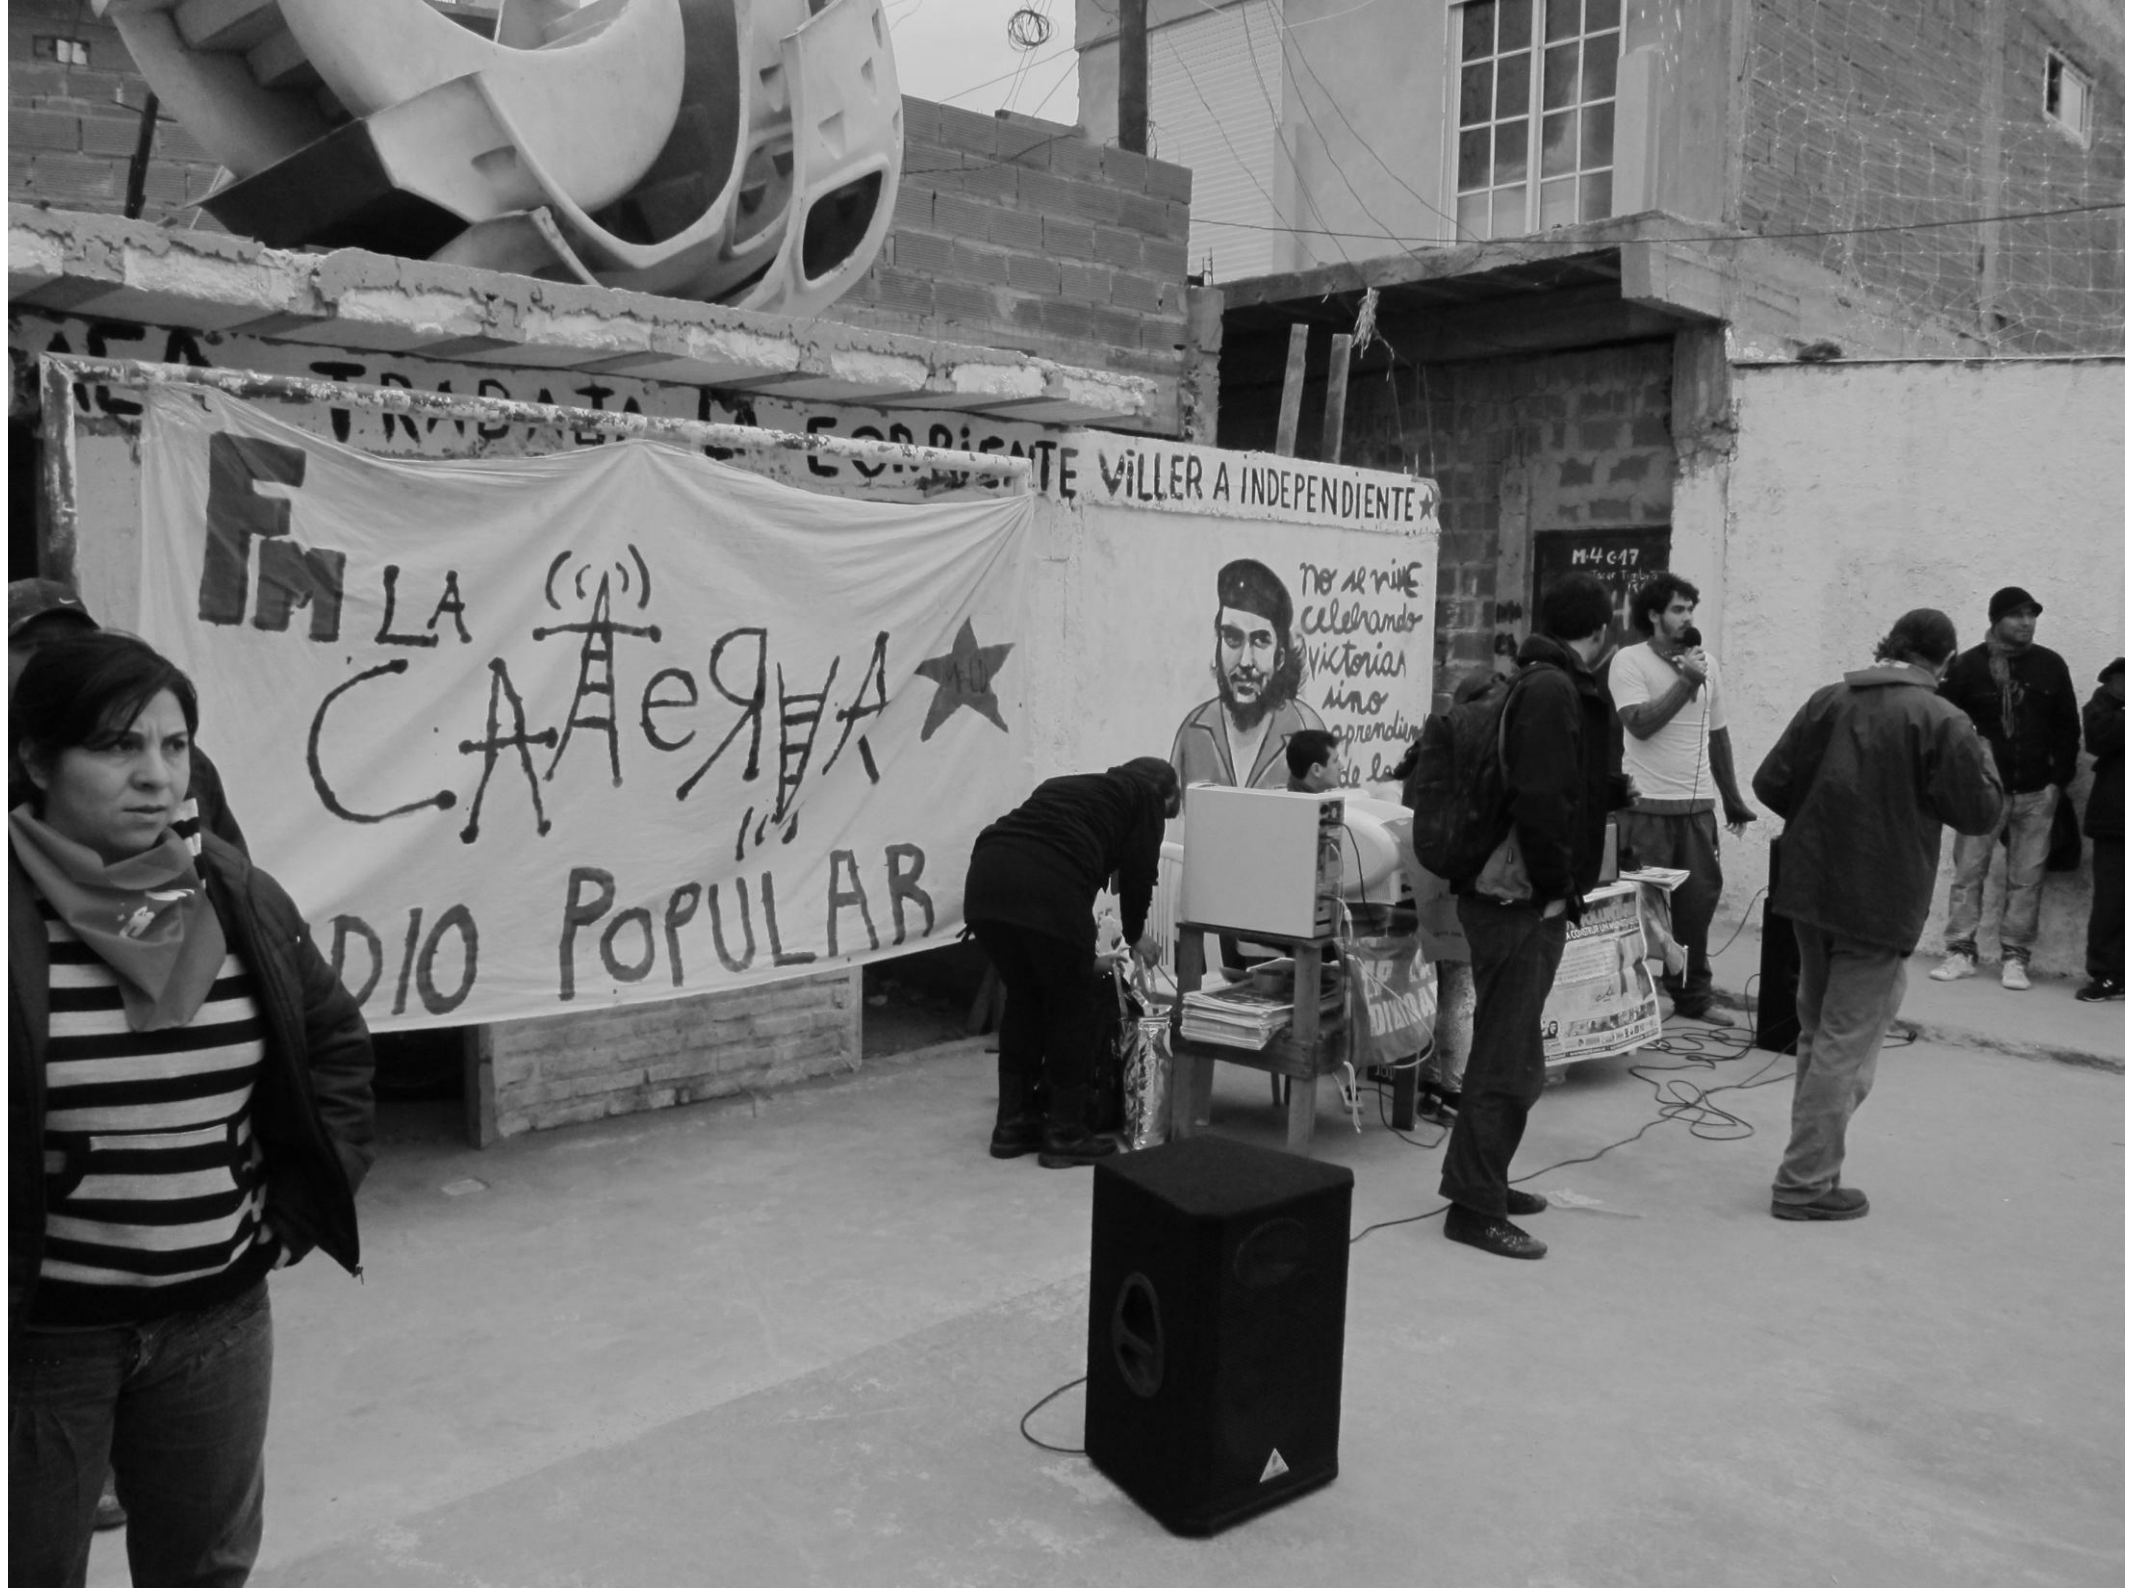 TRABAJA LA CORRIENTE VILLERA INDEPENDIENTE
FM LA
CATERVA
DIO POPULAR
no se vive
celebrando
victorias
sino
aprendien
de la
M-4 C-17
Tocar Timbre
A CONSTRUIR UN